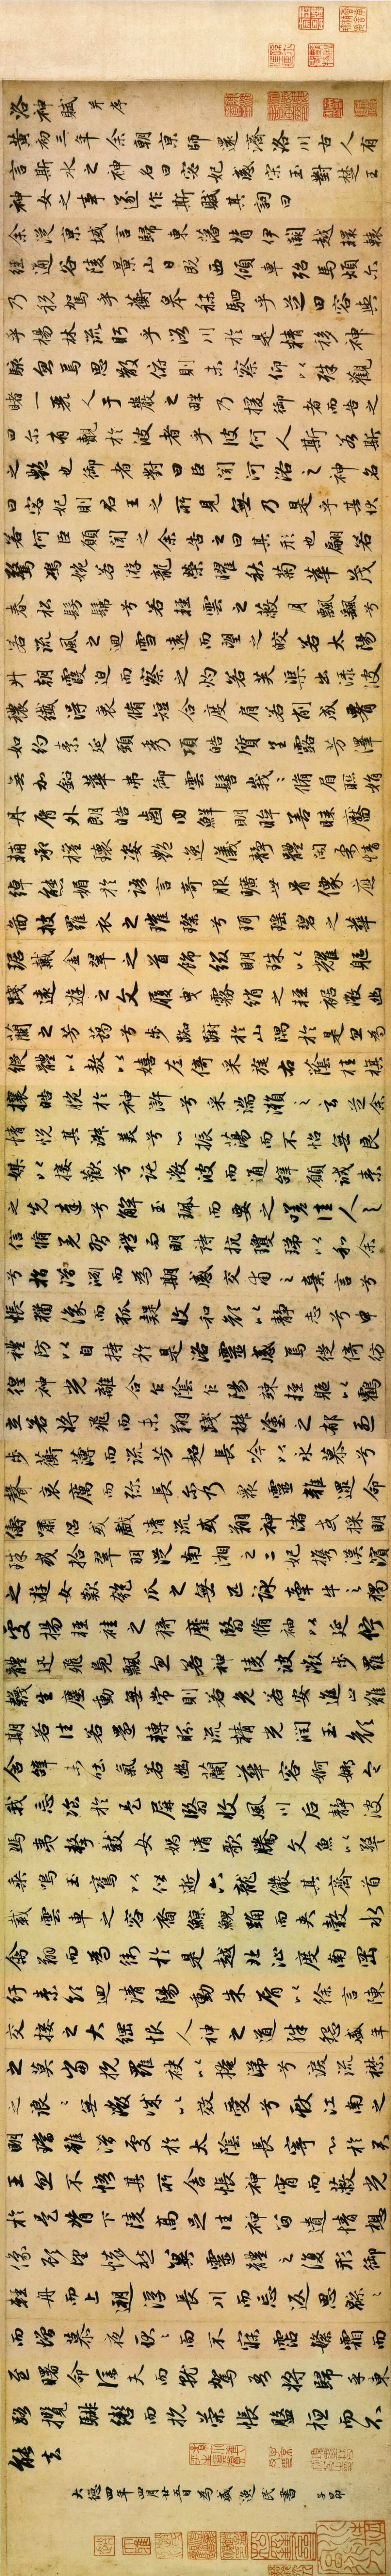 洛神賦 并序
黃初三年余朝京師還濟洛川古人有
言斯水之神名曰宓妃感宋玉對楚王
神女之事遂作斯賦其詞曰
余從京域言歸東藩背伊闕越轘轅
經通谷陵景山日既西傾車殆馬煩尔
乃稅駕乎蘅皋秣駟乎芝田容與
乎楊林流眄乎洛川於是精移神
駭忽焉思散俯則未察仰以殊觀
睹一麗人于巖之畔乃援御者而告之
曰尔有覿於彼者乎彼何人斯若斯
之艷也御者對曰臣聞河洛之神名
曰宓妃則君王之所見無乃是乎其狀
若何臣願聞之余告之曰其形也翩若
驚鴻婉若游龍榮曜秋菊華茂
春松髣髴兮若輕雲之蔽月飄飄兮
若流風之迴雪遠而望之皎若太陽
升朝霞迫而察之灼若芙蕖出淥波
穠纖得衷脩短合度肩若削成腰
如約素延頸秀項皓質呈露芳澤
無加鉛華弗御雲髻峩峩脩眉聯娟
丹脣外朗皓齒内鮮明眸善睞靨
輔承權瓌姿艷逸儀靜體閑柔情
綽態媚於語言奇服曠世骨像應
圖披羅衣之璀璨兮珥瑤碧之華
琚戴金翠之首飾綴明珠以耀軀
踐遠遊之文履曳霧綃之輕裾微幽
蘭之芳藹兮步踟躕於山隅於是忽焉
縱體以敖以嬉左倚采旄右蔭桂旗
攘皓捥於神滸兮采湍瀨之玄芝余
情悅其淑美兮心振蕩而不怡無良
媒以接歡兮託微波而通辭願誠素
之先達兮解玉珮而要之嗟佳人之
信脩羌習禮而明詩抗瓊珶以和余
兮指潛淵而為期感交甫之棄言兮
悵猶像而狐疑收和顏以靜志兮申
禮防以自持於是洛靈感焉徙倚彷
徨神光離合乍陰乍陽竦輕軀以鶴
立若將飛而未翔踐椒塗之郁烈
步蘅薄而流芳超長吟以永慕兮
聲哀厲而弥長尔乃眾靈雜遝命
儔嘯侶或戲清流或翔神渚或採明
珠或拾翠羽從南湘之二妃攜漢濱
之遊女歎匏瓜之無匹詠牽牛之獨
處揚輕袿之猗靡翳脩袖以延佇
體迅飛鳧飄忽若神陵波微步羅
韈生塵動無常則若危若安進止難
期若往若還轉眄流精光潤玉顏
含辭未吐氣若幽蘭華容婀娜令
我忘飡於是屏翳收風川后靜波
馮夷擊鼓女媧清歌騰文魚以警
乘鳴玉鸞以偕逝六龍儼其齊首
載雲車之容裔鯨鯢踊而夾轂水
禽翔而為衛於是越北沚度南岡
紆素領迴清陽動朱脣以徐言陳
交接之大綱恨人神之道殊怨盛年
之莫當抗羅袂以掩涕兮淚流襟
之浪浪無微誠以效愛兮獻江南之
明璫雖潛處於太陰長寄心於君
王忽不悟其所舍悵神宵而蔽光
於是背下陵高足往神留遺情想
像顧望懷愁冀靈體之復形御
輕舟而上遡浮長川而忘返思緜緜
而增慕夜耿耿而不寐霑繁霜而
至曙命僕夫而就駕吾將歸乎東
路攬騑轡而抗策悵盤桓而不
能去
大德四年四月廿五日為盛逸民書 子昂